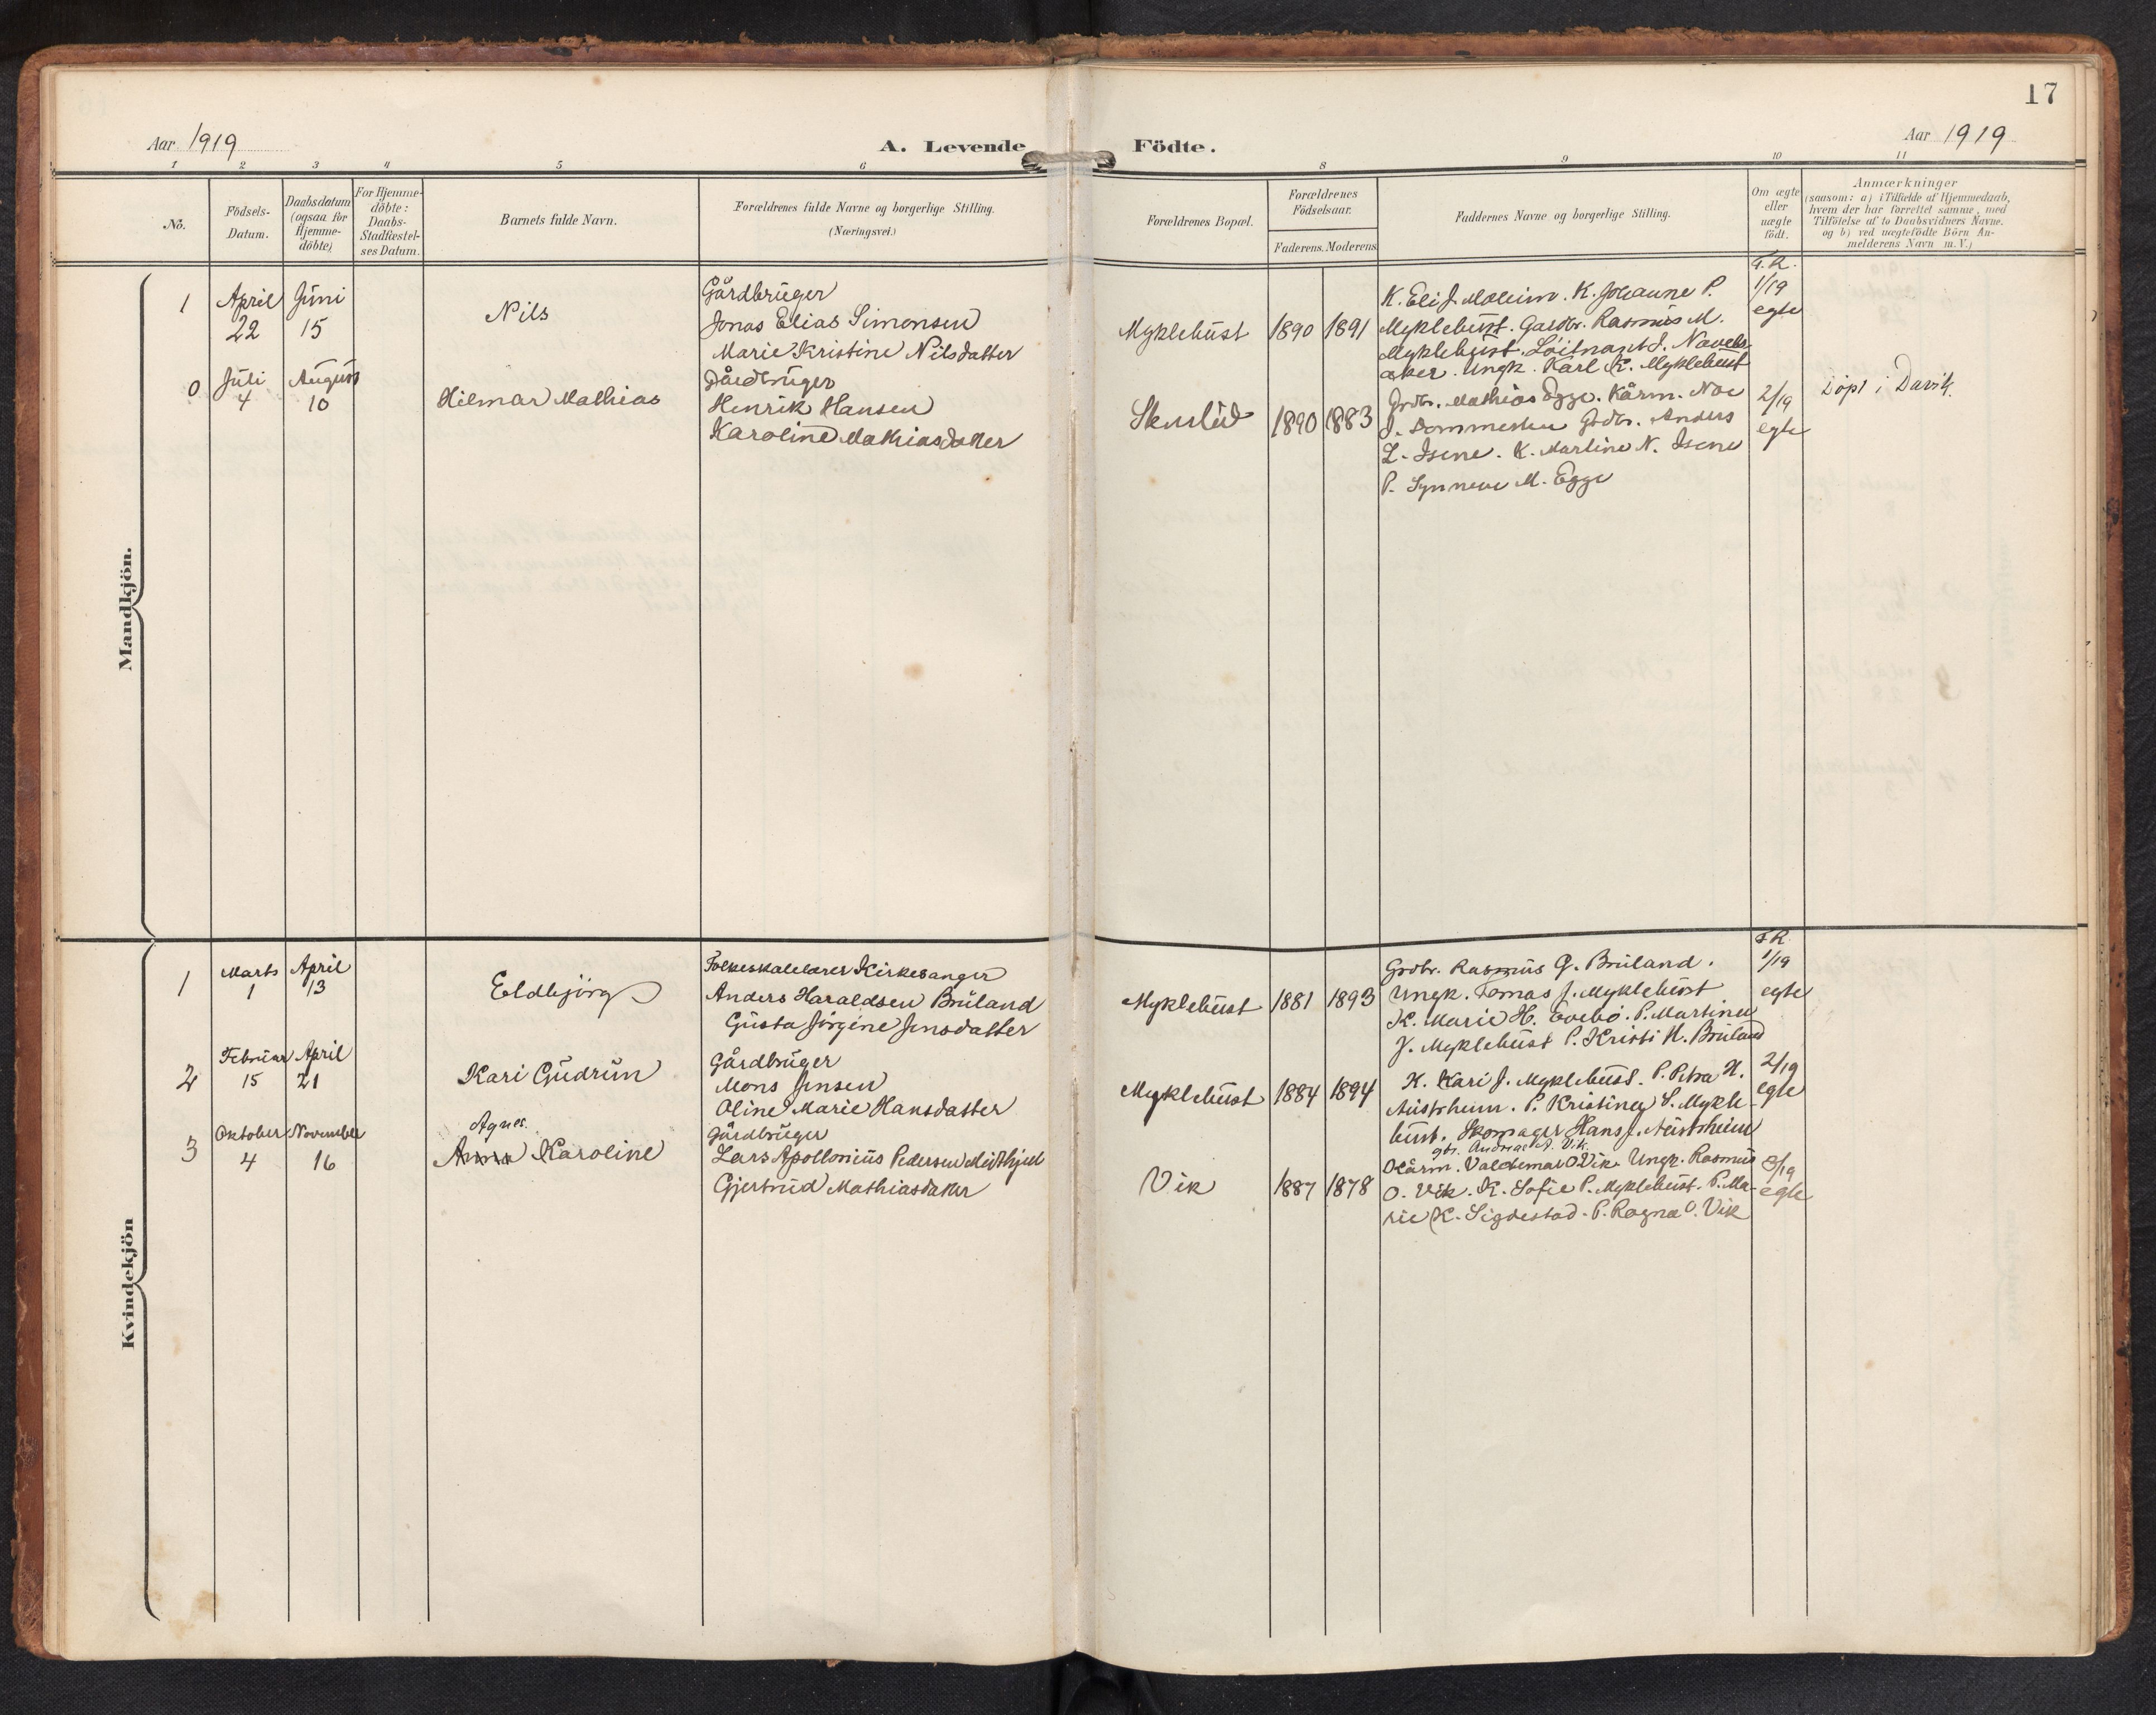 17
Aar 1919
A. Levende Födte.
Aar 1919
1 2 3 4 5 6 8 9 10 11
No.
Födsels-
Datum.
Daabsdatum
(ogsaa for
Hjemme-
döbte)
For Hjemme-
döbte:
Daabs-
Stadfæstel-
ses Datum.
Barnets fulde Navn.
Forældrenes fulde Navne og borgerlige Stilling.
(Næringsvei.)
Forældrenes Bopæl.
Forældrenes
Födselsaar.
Faderens. Moderens
Faddernes Navne og borgerlige Stilling.
Om ægte
eller
uægte
födt.
Anmærkninger
(saasom: a) i Tilfælde af Hjemmedaab,
hvem der har forrettet samme, med
Tilföielse af to Daabsvidners Navne.
og b) ved uægtefödte Börn An-
melderens Navn m.V.)
Mandkjön.
1
April
22
Juni
15
Nils
Gårdbruger
Jonas Elias Simonsen
Marie Kristine Nilsdatter
Myklebust
1890
1891
K. Eli J. Moleim. K. Johanne P.
Myklebust. Gardbr. Rasmus M.
Myklebust. Löitnant J. Navels
aker. Ungk. Karl R. Myklebust
F.R.
1/19
egte
0
Juli
4
August
10
Hilmar Mathias
Gårdbruger
Henrik Hansen
Karoline Mathiasdatter
1890
1883
Grdbr. Mathias Egge. Kårm. Noe
J. Dommersten Grdbr. Anders
L. Isene. K. Martine N. Isene
P. Synneve M. Egge
2/19
egte
Döpt i Davik.
Kvindekjön
1
Marts
1
April
13
Eldbjörg
Folkeskolelærer Kirkesanger
Anders Haraldsen Bruland
Gusta Jörgine Jensdatter
Myklebust
1881
1893
Grdbr. Rasmus G. Bruland.
Ungk. Tomas J. Myklebust
K. Marie H. Evebö. P. Martine
J. Myklebust P. Kristi H. Bruland
F.R.
1/19
egte
2
Februar
15
April
21
Kari Gudrun
Gårdbruger
Mons Jensen
Oline Marie Hansdatter
Myklebust
1884
1894
K. Kari J. Myklebust. P. Petra H.
Austrheim. P. Kristine S. Mykle-
bust. Skomager Hans J. Austrheim
2/19
egte
3
Oktober
4
November
16
Agnes
Anna Karoline
Gårdbruger
Lars Apollonius Pedersen Midthjell
Gjertrud Mathiasdatter
Vik
1887
1878
gbr. Andreas A. Vik.
Kårm. Valdemar O Vik. Ungk. Rasmus
O. Vik. K. Sofie P. Myklebust. P. Ma-
rie K. Sigdestad. P. Ragna O. Vik
3/19
egte